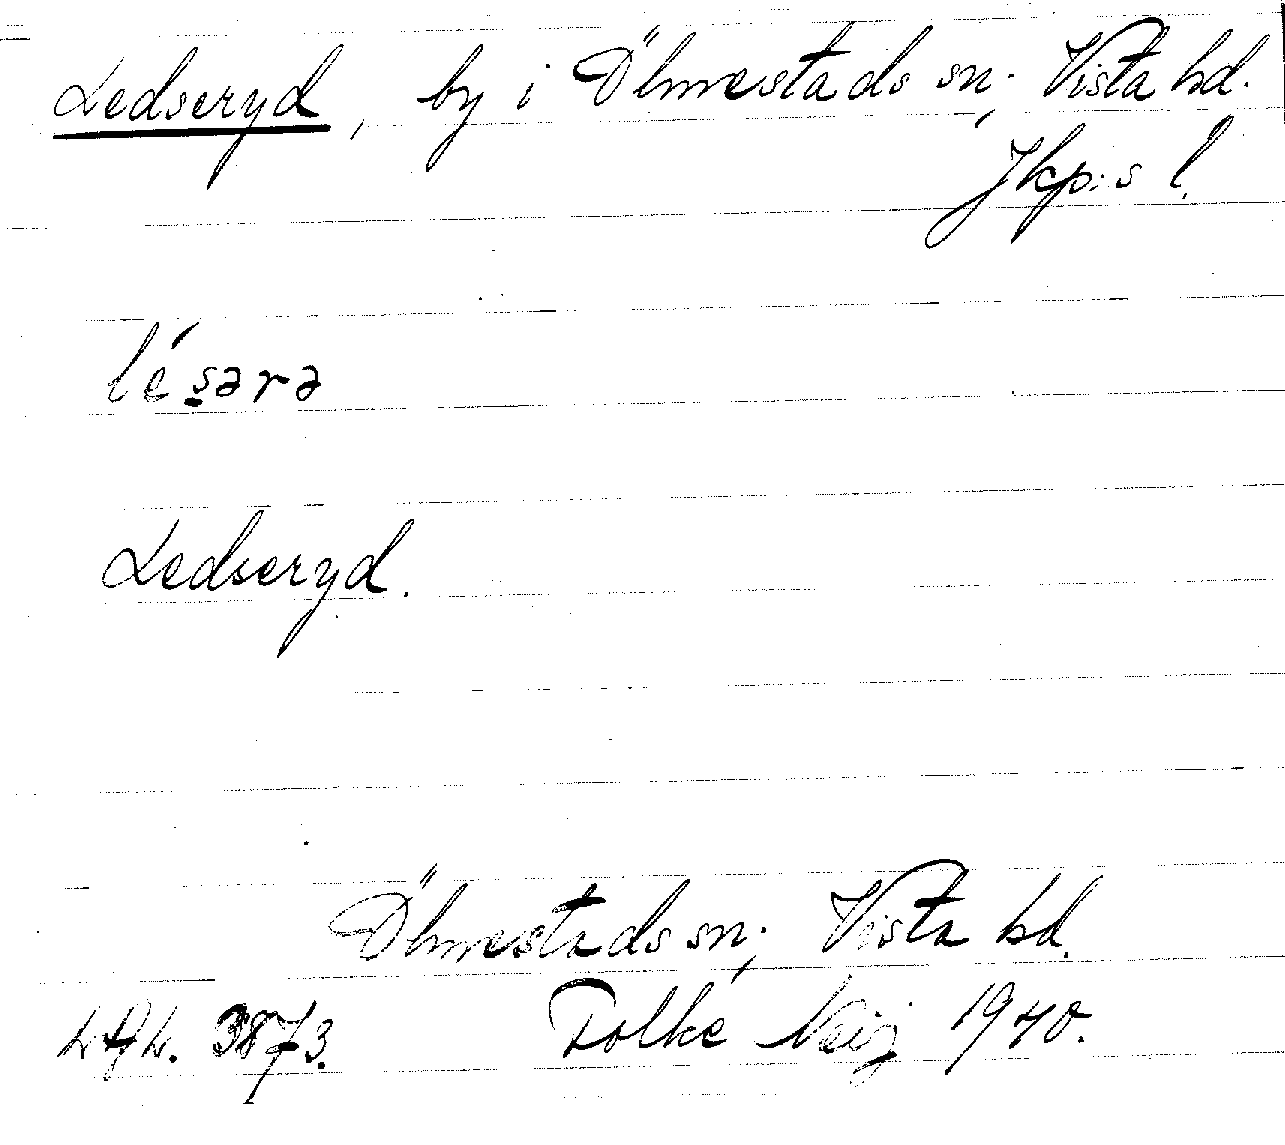 Ledseryd, by i Ölmestads sn; Vista hd.
Jkp:s l.
lés̱ərə
Ledseryd.
Ölmestads sn; Vista hd.
3873. Folke 1940.